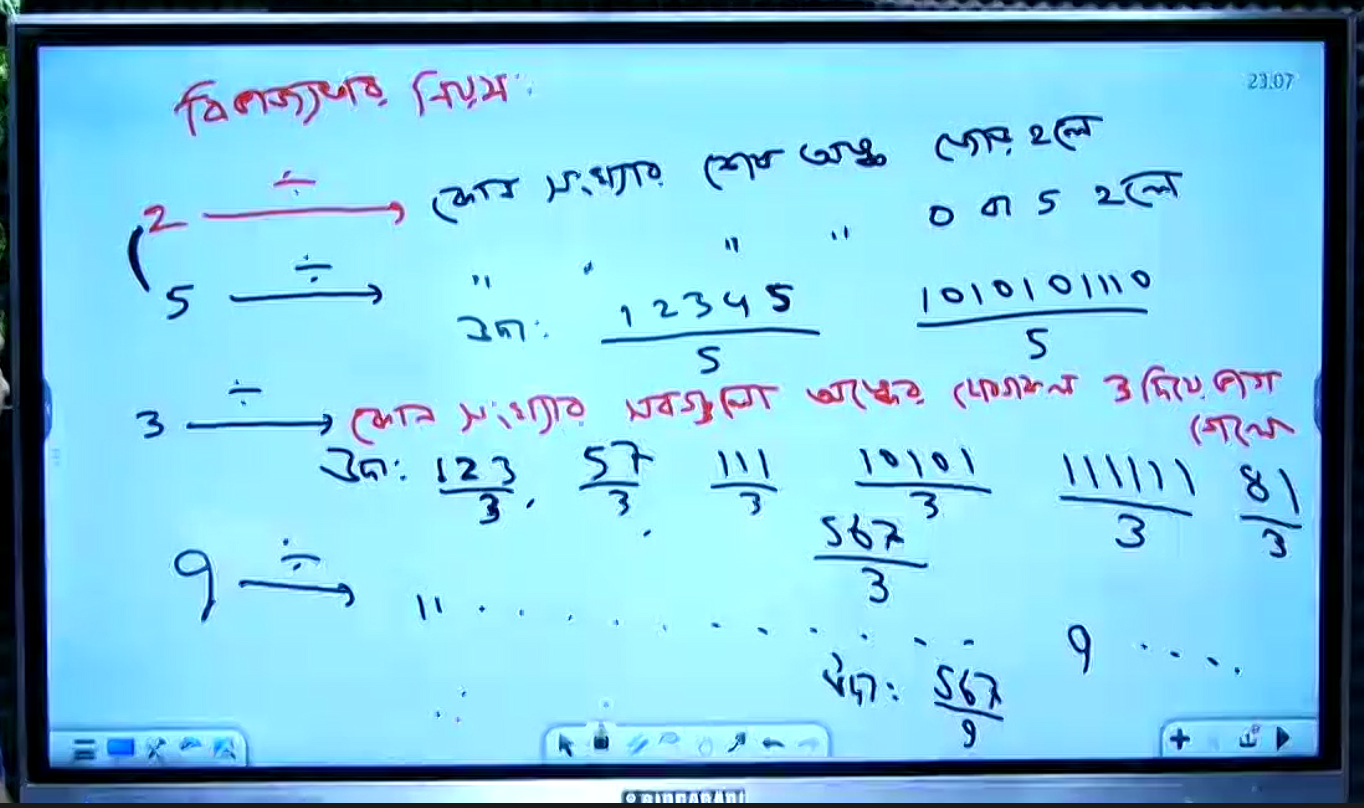 বিভাজ্যতার নিয়ম:
23:07
2 ÷ → কোন সংখ্যার শেষ অঙ্ক জোড় হলে
5 ÷ → " " " " 0 বা 5 হলে
উদা: 12345/5 1010101110/5
3 ÷ → কোন সংখ্যার সবগুলো অঙ্কের যোগফল 3 দিয়ে ভাগ
গেলে
উদা: 123/3, 57/3 111/3 10101/3 111111/3 81/3
567/3
9 ÷ → " . . . . . . . . . . 9 ....
উদা: 567/9